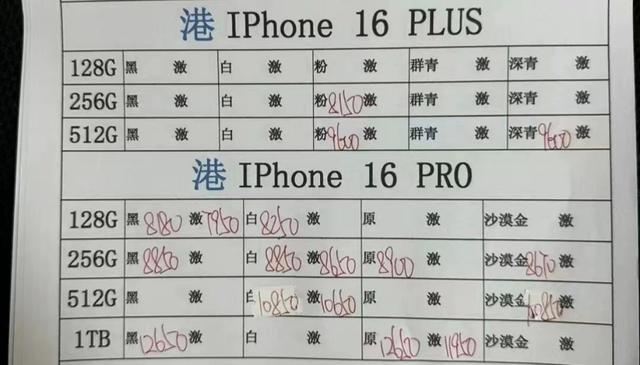 港 IPhone 16 PLUS
128G 黑 激 白 激 粉 激 群青 激 深青 激
256G 黑 激 白 激 粉 8150 激 群青 激 深青 激
512G 黑 激 白 激 粉 9600 激 群青 激 深青 9600 激
港 IPhone 16 PRO
128G 黑 8180 激 7950 白 8250 激 原 激 沙漠金 激
256G 黑 8850 激 白 8850 激 8650 原 8900 激 沙漠金 8670 激
512G 黑 激 白 10850 激 10650 原 激 沙漠金 10850 激
1TB 黑 12650 激 白 激 原 12650 激 11950 沙漠金 激